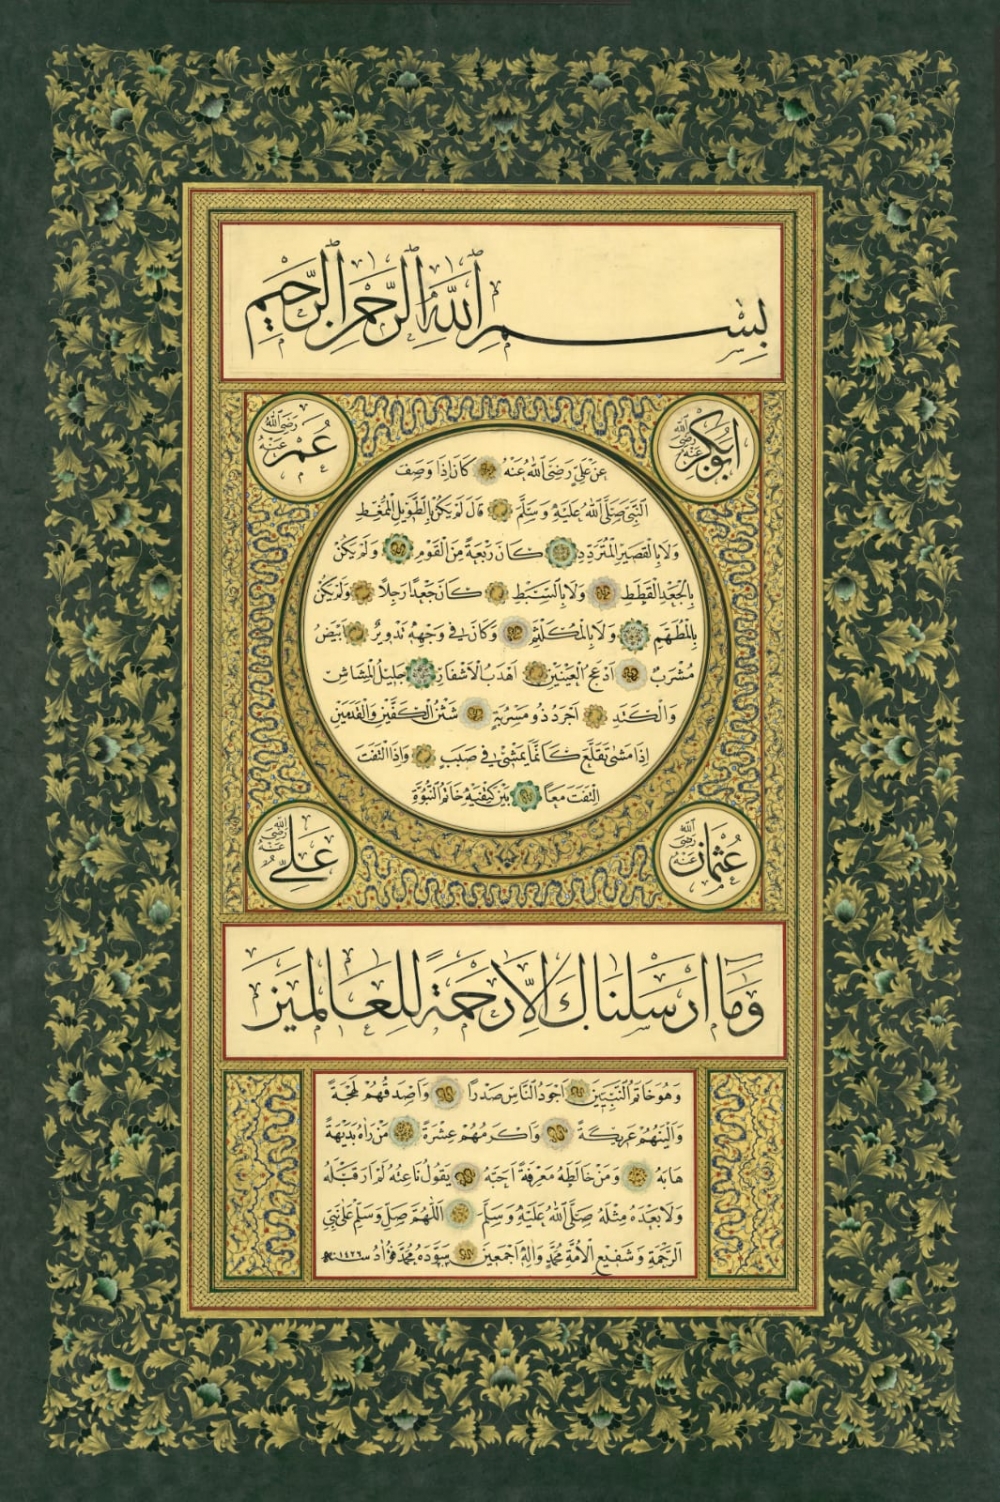 بِسْمِ اللهِ الرَّحْمٰنِ الرَّحِيمِ
ابُو بَكْرٍ رَضِيَ اللهُ عَنْهُ
عُمَرْ رَضِيَ اللهُ عَنْهُ
عَنْ عَلِيٍّ رَضِيَ اللهُ عَنْهُ كَانَ اِذَا وَصِفَ
النَّبِيَّ صَلَّى اللهُ عَلَيْهِ وَسَلَّمَ قَالَ لَمْ يَكُنْ بِالطَّوِيلِ الْمُمَّغِطِ
وَلَا بِالْقَصِيرِ الْمُتَرَدِّدِ كَانَ رَبْعَةً مِنَ الْقَوْمِ وَلَمْ يَكُنْ
بِالْجَعْدِ الْقَطَطِ وَلَا بِالسَّبْطِ كَانَ جَعْدًا رَجِلًا وَلَمْ يَكُنْ
بِالْمُطَهَّمِ وَلَا بِالْمُكَلْثَمِ وَكَانَ فِي وَجْهِهِ تَدْوِيرٌ اَبْيَضُ
مُشْرَبٌ اَدْعَجُ الْعَيْنَيْنِ اَهْدَبُ الْاَشْفَارِ جَلِيلُ الْمُشَاشِ
وَالْكَتَدِ اَجْرَدُ ذُو مَسْرُبَةٍ شَثْنُ الْكَفَّيْنِ وَالْقَدَمَيْنِ
اِذَا مَشٰى تَقَلَّعَ كَاَنَّمَا يَمْشِي فِي صَبَبٍ وَاِذَا الْتَفَتَ
الْتَفَتَ مَعًا بَيْنَ كَتِفَيْهِ خَاتَمُ النُّبُوَّةِ
عُثْمَانْ رَضِيَ اللهُ عَنْهُ
عَلِيّ رَضِيَ اللهُ عَنْهُ
وَمَا اَرْسَلْنَاكَ اِلَّا رَحْمَةً لِلْعَالَمِينَ
وَهُوَ خَاتَمُ النَّبِيِّينَ اَجْوَدُ النَّاسِ صَدْرًا وَاَصْدَقُهُمْ لَهْجَةً
وَاَلْيَنُهُمْ عَرِيكَةً وَاَكْرَمُهُمْ عِشْرَةً مَنْ رَاٰهُ بَدِيهَةً
هَابَهُ وَمَنْ خَالَطَهُ مَعْرِفَةً اَحَبَّهُ يَقُولُ نَاعِتُهُ لَمْ اَرَ قَبْلَهُ
وَلَا بَعْدَهُ مِثْلَهُ صَلَّى اللهُ عَلَيْهِ وَسَلَّمَ اَللّٰهُمَّ صَلِّ وَسَلِّمْ عَلٰى نَبِيِّ
الرَّحْمَةِ وَشَفِيعِ الْاُمَّةِ مُحَمَّدٍ وَاٰلِهِ اَجْمَعِينَ سَوَّدَهُ مُحَمَّد فُؤَادْ سنة ١٤٢٦